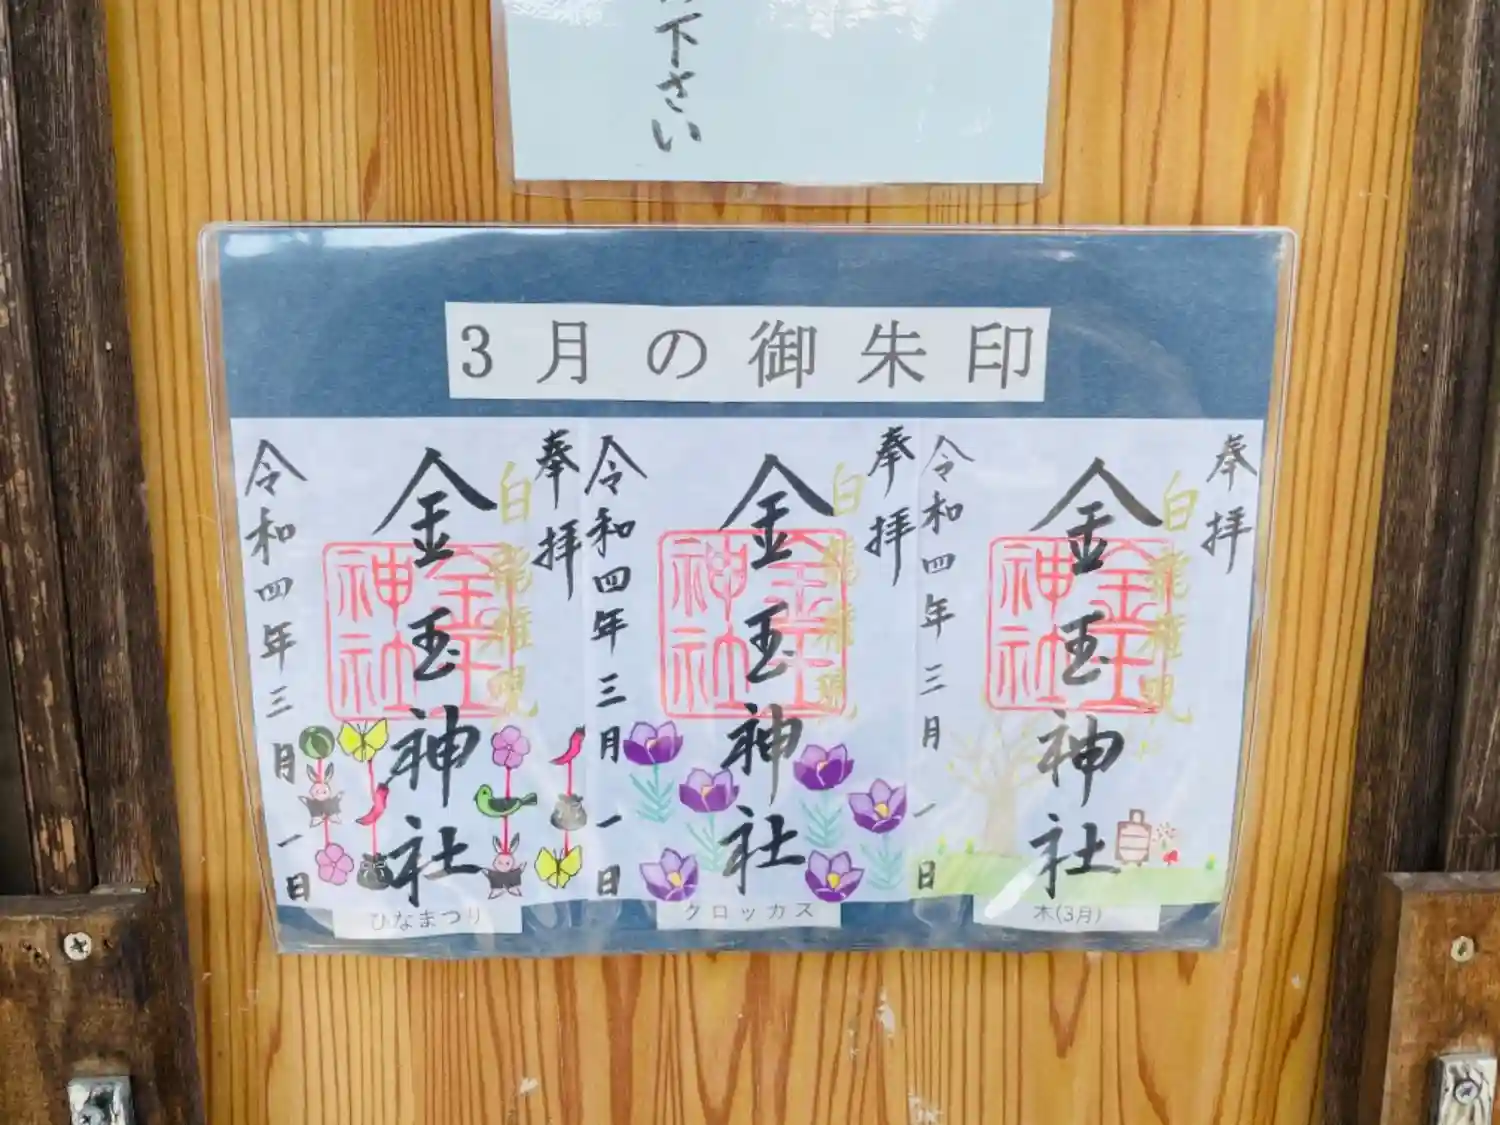 下さい
3月の御朱印
奉拝
白龍権現
金玉神社
金玉神社
令和四年三月一日
ひなまつり
奉拝
白龍権現
金玉神社
金玉神社
令和四年三月一日
クロッカス
奉拝
白龍権現
金玉神社
金玉神社
令和四年三月一日
木(3月)